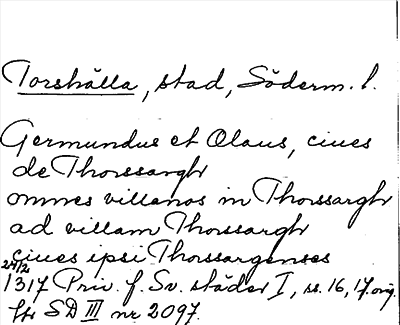 Torshälla, stad, Söderm. l.
Germundus et Olaus, ciues
de Thorssargh
omnes villanos in Thorssargh
ad villam Thorssargh
ciues ipsi Thorssargenses
24/2
1317 Priv. f. Sv. städer I, ss. 16, 17. orig.
fr SD III nr 2097.